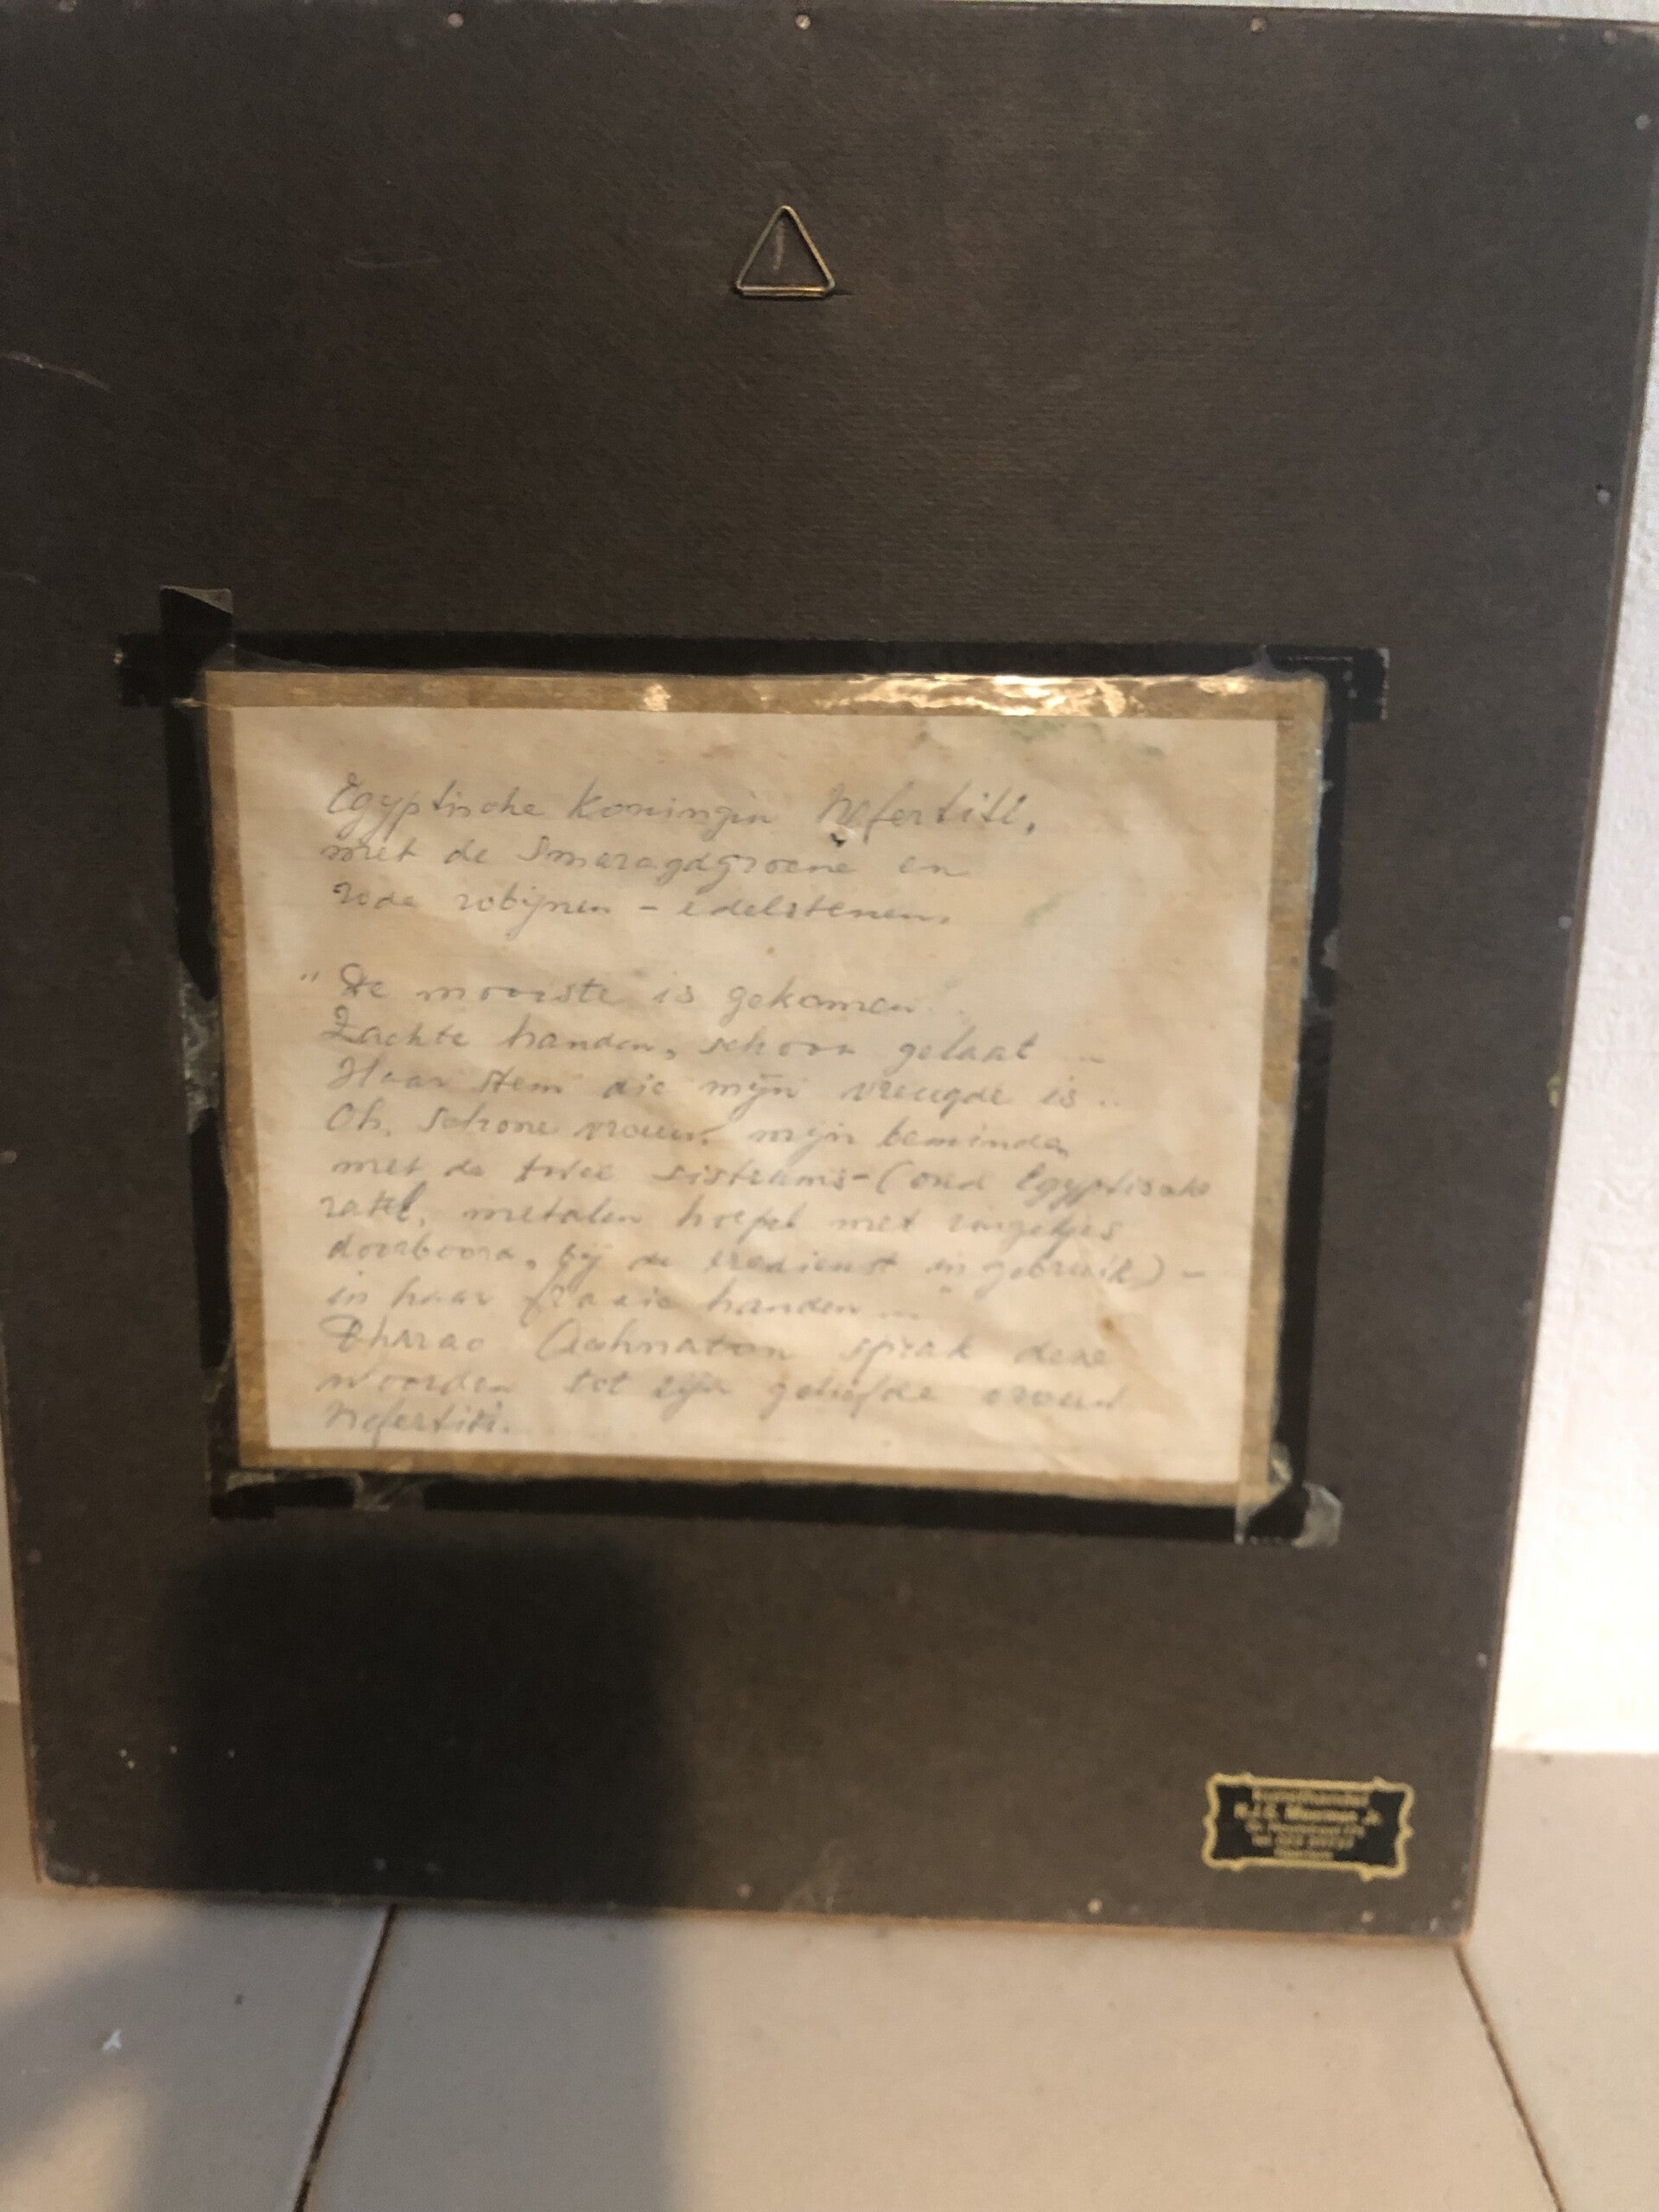 Egyptische Koningin Nefertiti,
met de Smaragdgroene en
rode robijnen - edelstenen.
"De mooiste is gekomen..
Zachte handen, schoon gelaat ...
Haar stem die mijn vreugde is ..
Oh, schone vrouw, mijn beminde
met de twee sistrums - (oud Egyptische
ratel, metalen hoepel met ringetjes
doorboord, bij de eredienst in gebruik) -
in haar fraaie handen ...."
Pharao Achnaton sprak deze
woorden tot zijn geliefde vrouw
Nefertiti.
Kunsthandel
Meurman Jr.